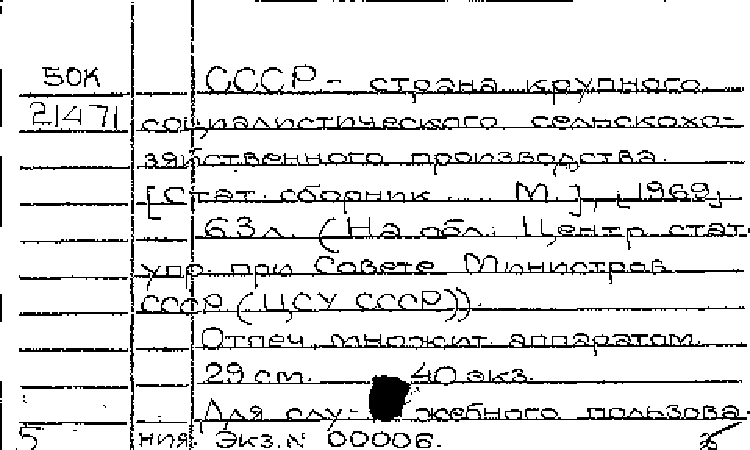 50К СССР - страна крупного
21471 социалистического сельскохо-
зяйственного производства.
[Стат. сборник .... М.], [1969]
63 л. (На обл.: Центр. стат.
упр. при Совете Министров
СССР (ЦСУ СССР)).
Отпеч. множит. аппаратом.
29 см. 40 экз.
Для слу- жебного пользова-
5 ния. Экз. № 00006.